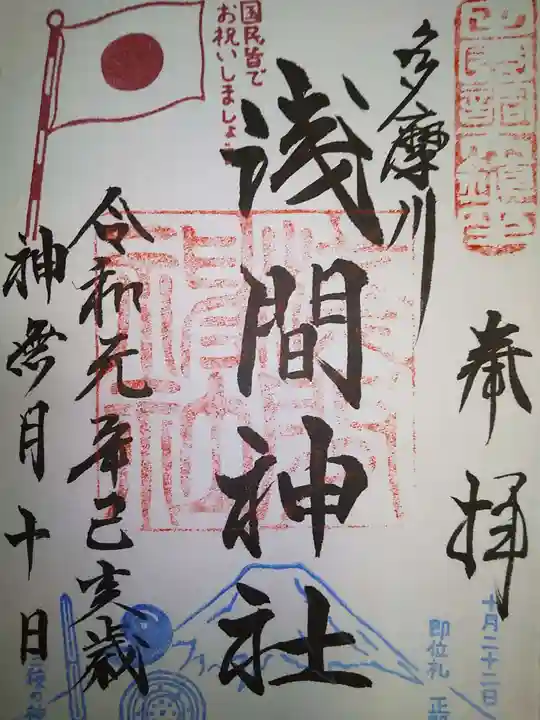 奉拝
多摩川
浅間神社
令和元年己亥歳
神無月十日
国民皆で
お祝いしましょう
十月二十二日
即位礼 正